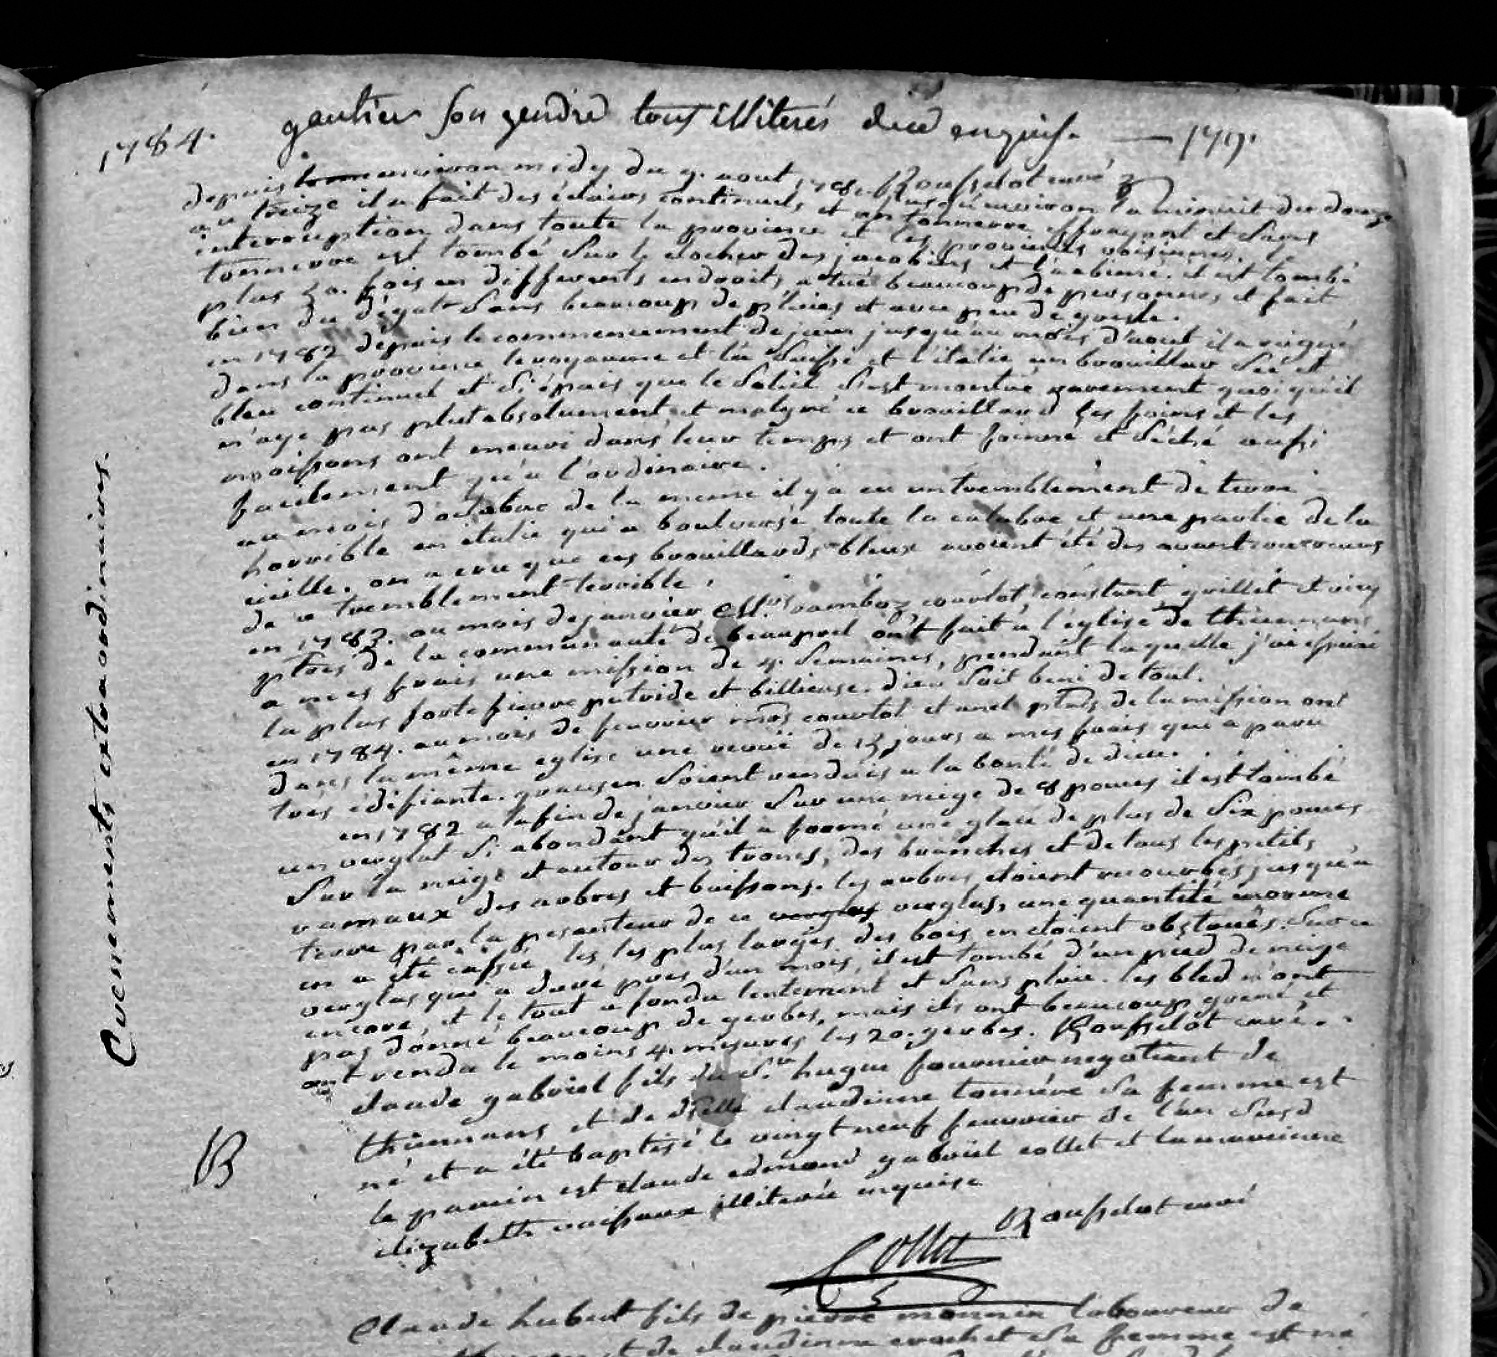 1784.
gautier son gendre tous illiterés dece enquis. — 179.
Rousselot curé
depuis environ midy du 9. aout 178 jusqu'environ la minuit du douze
au treize il a fait des éclairs continuels et un tonnerre effrayant et sans
interruption dans toute la province et les provinces voisines. le
tonnerre est tombé sur le clocher des jacobins et l'a abimé. il est tombé
plus 30. fois en differents endroits, a tué beaucoup de personnes et fait
bien du dégat sans beaucoup de pluies et avec peu de grele.
en 1782 depuis le commencement de juin jusqu'au mois d'aout il a régné
dans la province le royaume et la suisse et l'italie un brouillar sec et
bleu continuel et si épais que le soleil s'est montré rarement quoiqu'il
n'aye pas plut absolument et malgré ce brouillard les foins et les
moissons ont meuri dans leur temps et ont fainné et séché aussi
facilement qu'a l'ordinaire.
au mois d'octobre de la meme il y a eu un tremblement de terre
horrible en italie qui a boulversé toute la calabre et une partie de la
cicille. on a cru que ces brouillards bleux avoient été des avant coureurs
de ce tremblement terrible.
en 1783. au mois de janvier ramboz courtot, constant, grillet et viry
ptres de la communauté de beaupré ont fait a l'église de thiennans
a mes frais une mission de 4. semaines, pendant laquelle j'ai essuié
la plus forte fievre putride et billieuse. dieu soit beni de tout.
en 1784. au mois de fevrier mrs courtot et ptres de la mission ont
dans la même eglise une revuë de 13 jours a mes frais qui a paru
tres édifiante. graces en soient renduës a la bonté de dieu.
en 1782 a la fin de janvier sur une neige de 8 pouces il est tombé
un verglat si abondant qu'il a formé une glace de plus de six pouces
sur la neige et autour des troncs, des branches et de tous les petits
rameaux des arbres et buissons. les arbres étoient recourbés jusqu'a
terre par la pesanteur de ce verglas verglas, une quantité enorme
en a été cassée, les les plus larges des bois en étoient obstrués. sur ce
verglas qui a duré pres d'un mois, il est tombé d'un pied de neige
encore, et le tout a fondu lentement et sans pluie. les bled n'ont
pas donné beaucoup de gerbes, mais ils ont beaucoup grené, et
ont rendu le moins 4. mesures les 20. gerbes. Rousselot curé.
Evenements extraordinaires.
B
claude gabriel fils du Sr hugue fournier negotiant de
thiennans et de dselle claudinne tonnére sa femme est
né et a été baptisé le vingt neuf fevrier de l'an susd
le parrein est claude edmond gabriel collet et la marreinne
elizabeth vaissaux illiterée enquise
Rousselot curé
Collet
Claude hubert fils de pierre monnin laboureur de
et de claudinne crochet sa femme est né